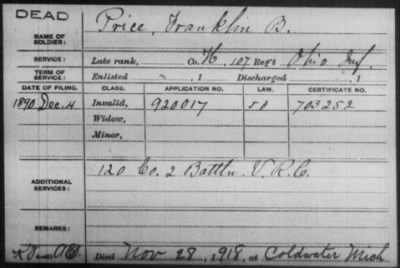 DEAD
NAME OF SOLDIER: Price, Franklin B.
SERVICE: Late rank, Co. H, 107 Reg't Ohio Inf.
TERM OF SERVICE: Enlisted , 1 Discharged , 1
DATE OF FILING. CLASS. APPLICATION NO. LAW. CERTIFICATE NO.
1890 Dec. 4 Invalid, 920017 703252
Widow,
Minor,
ADDITIONAL SERVICES: 120 Co. 2 Battln V.R.C.
REMARKS:
Died Nov 28, 1918, at Coldwater Mich